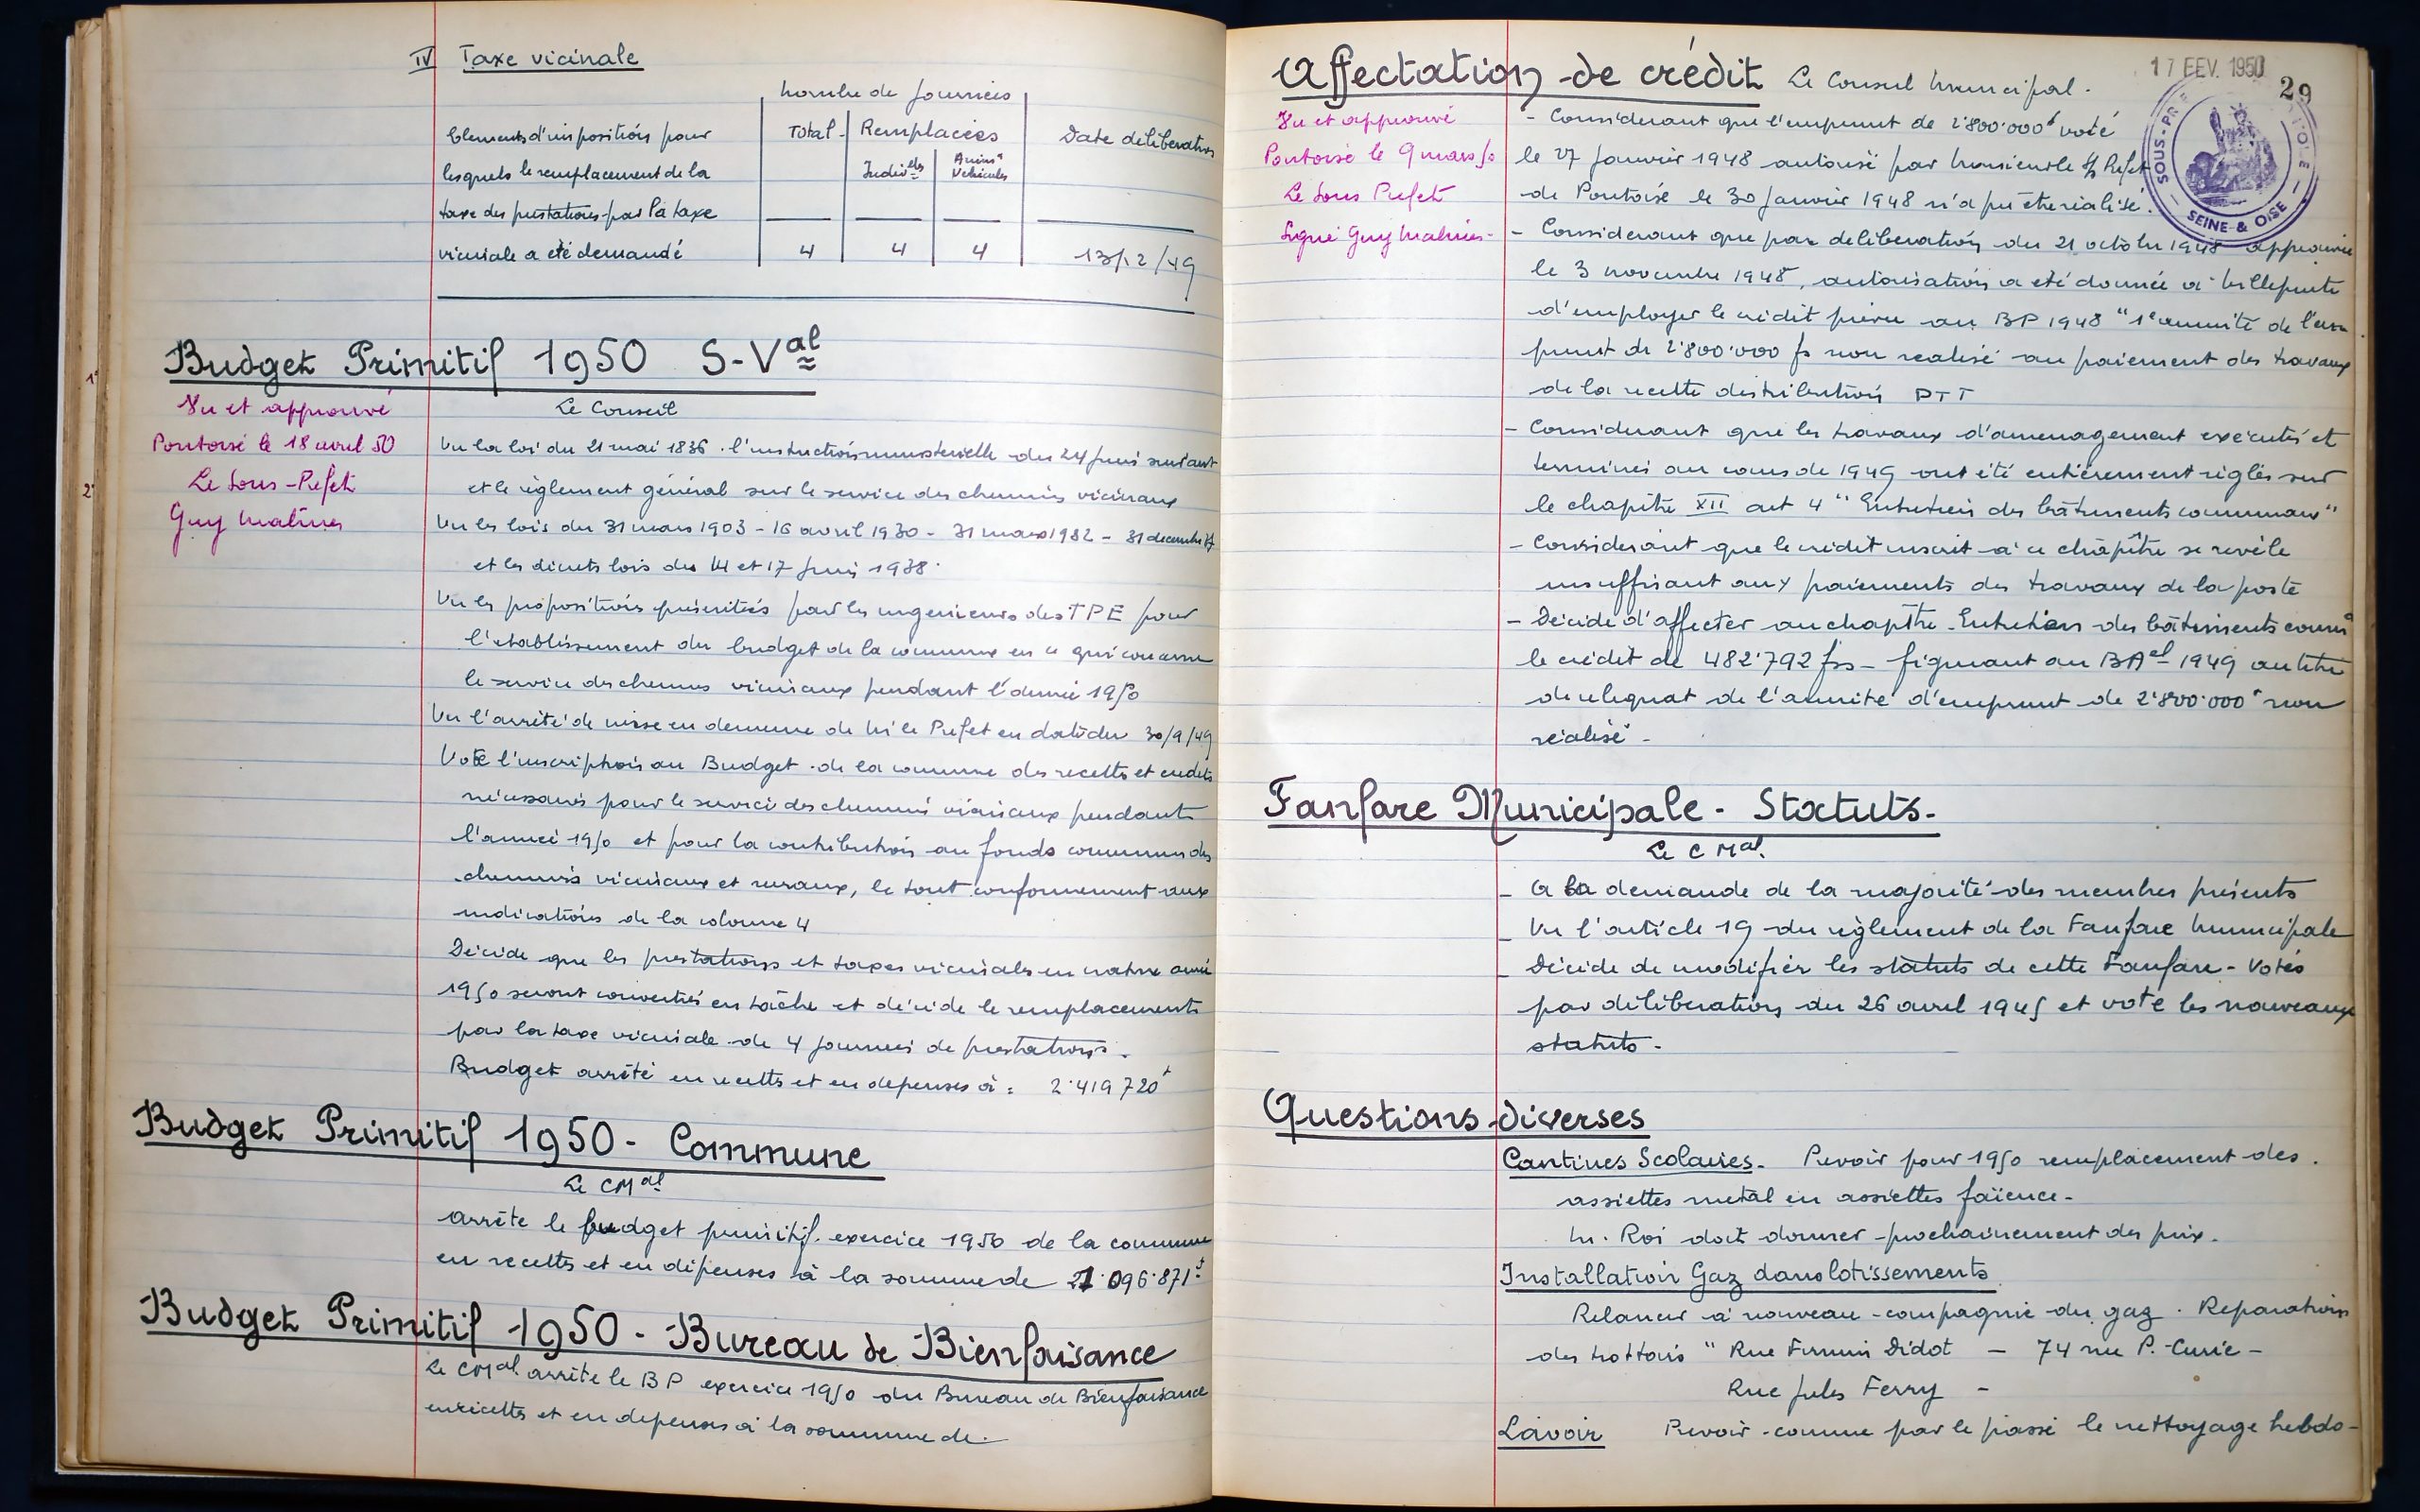 IV Taxe vicinale
Nombre de journées
Elements d'imposition pour
Total
Remplacées
Date deliberation
lesquels le remplacement de la
Indiv.elles
Anim.x
Vehicules
taxe des prestations par la taxe
vicinale a été demandé
4
4
4
13/12/49
Budget Primitif 1950 S-Val
1°
Vu et approuvé
Le Conseil
Pontoise le 18 avril 50
Vu la loi du 21 mai 1836 . l'instruction ministerielle du 24 juin suivant
2°
Le Sous-Prefet
et le règlement général sur le service des chemins vicinaux
Guy
Vu les lois du 31 mars 1903 - 16 avril 1930 - 31 mars 1932 - 31 decembre 37
et les décrets lois du 14 et 17 juin 1938.
Vu les propositions présentées par les ingenieurs des TPE pour
l'etablissement du budget de la commune en ce qui concerne
le service des chemins vicinaux pendant l'année 1950
Vu l'arrêté de mise en demeure de Mr le Prefet en date du 30/9/49
Vote l'inscription au Budget de la commune des recettes et credits
nécessaires pour le service des chemins vicinaux pendant
l'année 1950 et pour la contribution au fonds commun des
chemins vicinaux et ruraux, le tout conformement aux
indications de la colonne 4
Décide que les prestations et taxes vicinales en nature année
1950 seront converties en tâche et décide le remplacement
par la taxe vicinale de 4 journées de prestations.
Budget arrêté en recettes et en depenses à : 2.419 720f
Budget Primitif 1950 - Commune
Le CMal
arrête le budget primitif. exercice 1950 de la commune
en recettes et en dépenses à la somme de 21.096.871f
Budget Primitif 1950 - Bureau de Bienfaisance
Le CMal arrête le BP exercice 1950 du Bureau de Bienfaisance
en recettes et en depenses à la somme de.
17 FEV. 1950
29
SOUS-PRE
TOISE
SEINE & OISE
Affectation de crédit Le Conseil Municipal.
Vu et approuvé
- Considerant que l'emprunt de 2.800.000f voté
Pontoise le 9 mars 50
le 27 janvier 1948 autorisé par Monsieur le S/Prefet
Le Sous Prefet
de Pontoise le 30 janvier 1948 n'a pu être réalisé.
Signé Guy
- Considerant que par deliberation du 21 octobre 1948 approuvée
le 3 novembre 1948, autorisation a été donnée à
d'employer le crédit prévu au BP 1948 "1e annuité de l'em-
prunt de 2.800.000 fs non realisé au paiement des travaux
de la recette distribution PTT
- Considerant que les travaux d'aménagement exécutés et
terminés au cours de 1949 ont été entièrement réglés sur
le chapitre XII art 4 "Entretien des bâtiments communaux"
- Considerant que le crédit inscrit à ce chapître se revèle
insuffisant aux paiements des travaux de la poste
- Décide d'affecter au chapître Entretien des bâtiments commx
le crédit de 482.792 frs - figurant au BAel 1949 au titre
de reliquat de l'annuité d'emprunt de 2.800.000f non
réalisé -
Fanfare Municipale - Statuts.
Le C Mal.
- A la demande de la majorité des membres présents
- Vu l'article 19 du règlement de la Fanfare Municipale
- Décide de modifier les statuts de cette Fanfare - Votés
par délibération du 26 avril 1945 et vote les nouveaux
statuts.
Questions diverses
Cantines Scolaires. Prevoir pour 1950 remplacement des
assiettes metal en assiettes faïence -
M. Roi doit donner prochainement des prix.
Installation Gaz dans lotissements
Relancer à nouveau compagnie du gaz . Reparations
des trottoirs " Rue Firmin Didot - 74 rue P. Curie -
Rue Jules Ferry -
Lavoir Prevoir comme par le passé le nettoyage hebdo-